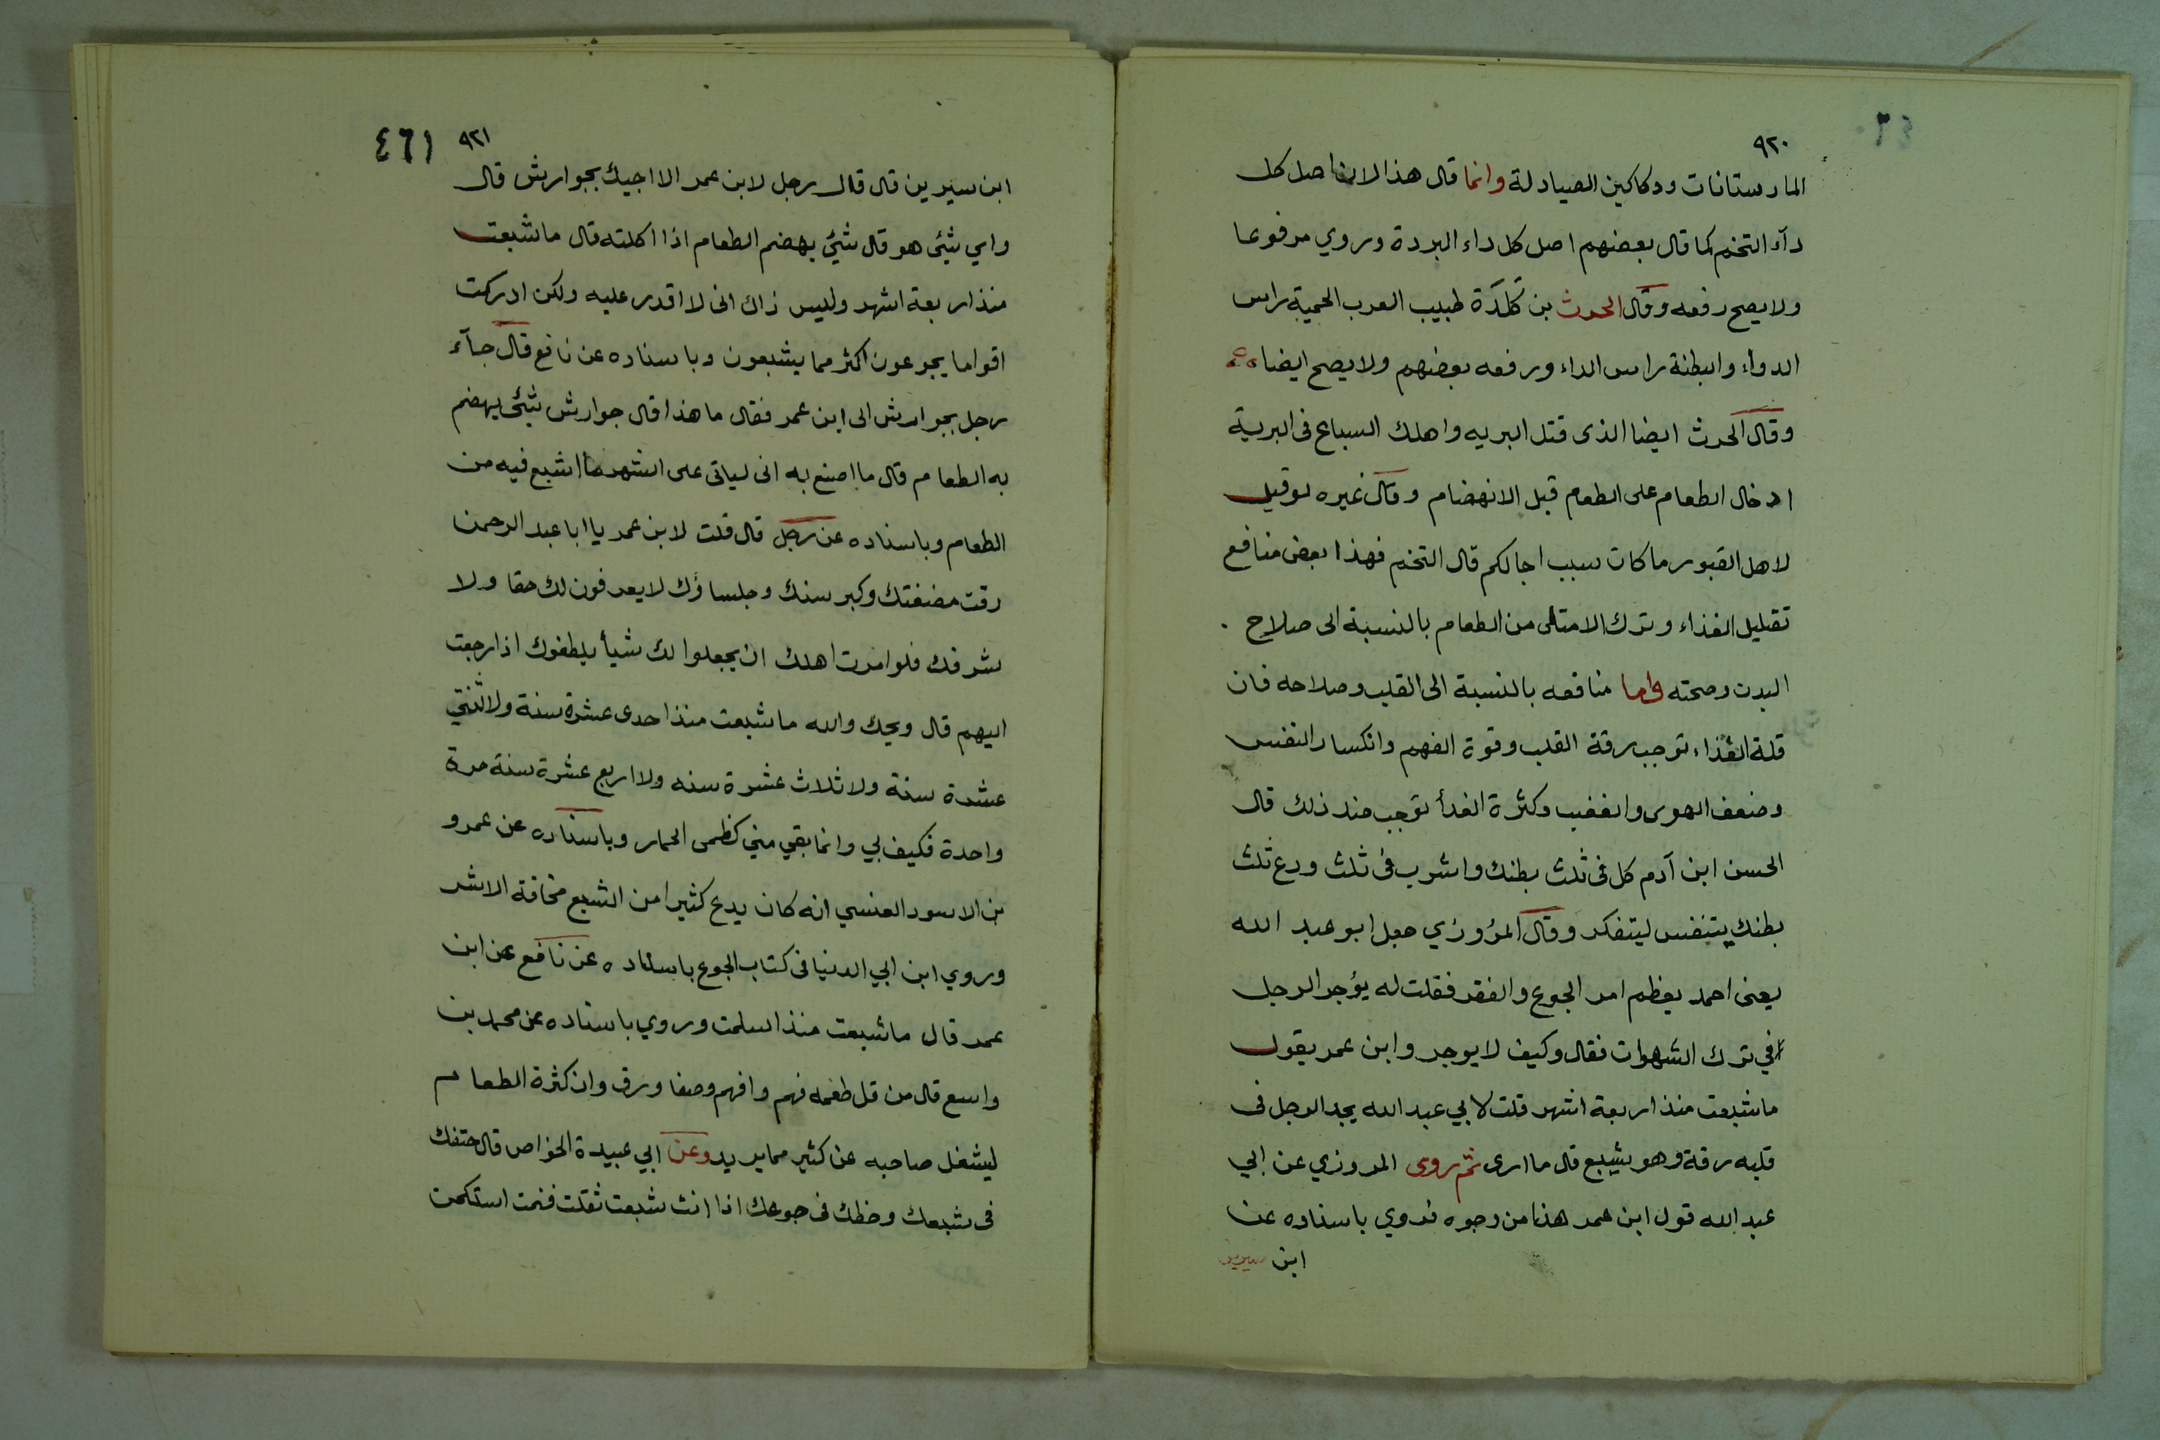 ٩٢٠
المارستانات ودكاكين الصيادلة وانما قال هذا لان اصل كل
دآء التخم كما قال بعضهم اصل كل داء البردة وروي مرفوعا
ولا يصح رفعه وقال الحرث بن كَلَدَة طبيب العرب الحمية راس
الدواء والبطنة راس الداء ورفعه بعضهم ولا يصح ايضا
وقال الحرث ايضا الذى قتل البريه واهلك السباع فى البرية
ادخال الطعام على الطعام قبل الانهضام وقال غيره لو قيل
لاهل القبور ما كان سبب اجالكم قال التخم فهذا بعض منافع
تقليل الغذاء وترك الامتلى من الطعام بالنسبة الى صلاح
البدن وصحته واما منافعه بالنسبة الى القلب وصلاحه فان
قلة الغذاء توجب رقة القلب وقوة الفهم وانكسار النفس
وضعف الهوى والغضب وكثرة الغدأ توجب ضد ذلك قال
الحسن ابن آدم كل فى ثلث بطنك واشرب فى ثلث ودع ثلث
بطنك يتنفس ليتفكر وقال المروزي جعل ابو عبد الله
يعنى احمد يعظم امر الجوع والفقر فقلت له يؤجر الرجل
في ترك الشهوات فقال وكيف لا يوجر وابن عمر يقول
ما شبعت منذ اربعة اشهر قلت لابي عبد الله يجد الرجل فى
قلبه رقة وهو يشبع قال ما ارى ثم روى المروزي عن ابي
عبد الله قول ابن عمر هذا من وجوه فروي باسناده عن
ابن سيرين
٤٦١
٩٢١
ابن سيرين قال قال رجل لابن عمر الا اجيك بجوارش قال
واي شئ هو قال شئ يهضم الطعام اذا اكلته قال ما شبعت
منذ اربعة اشهر وليس ذاك انى لا اقدر عليه ولكن ادركت
اقواما يجوعون اكثر مما يشبعون وباسناده عن نافع قال جآء
رجل بجوارش الى ابن عمر فقال ما هذا قال جوارش شئ يهضم
به الطعام قال ما اصنع به انى لياتى على الشهر ما اشبع فيه من
الطعام وباسناده عن رجل قال قلت لابن عمر يا ابا عبد الرحمن
رقت مضغتك وكبر سنك وجلساؤك لا يعرفون لك حقا ولا
شرفك فلو امرت اهلك ان يجعلوا لك شيأ يلطفوك اذا رجعت
اليهم قال ويحك والله ما شبعت منذ احدى عشرة سنة ولا ثنتي
عشرة سنة ولا ثلاث عشرة سنه ولا اربع عشرة سنة مرة
واحدة فكيف بي وانما بقي مني كظمى الحمار وباسناده عن عمرو
بن الاسود العنسي انه كان يدع كثيرا من الشبع مخافة الاشر
وروي ابن ابي الدنيا فى كتاب الجوع باسناده عن نافع عن ابن
عمر قال ما شبعت منذ اسلمت وروي باسناده عن محمد بن
واسع قال من قل طعمه فهم وافهم وصفا ورق وان كثرة الطعام
ليشغل صاحبه عن كثير مما يريد وعن ابي عبيدة الخواص قال حتفك
فى شبعك وحظك فى جوعك اذا انت شبعت ثقلت فنمت استكمن